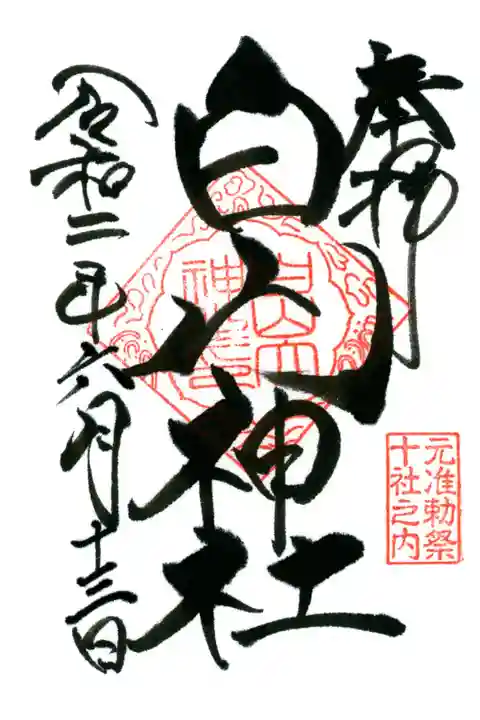 奉拝
白山神社
令和二年六月十三日
元准勅祭
十社之内